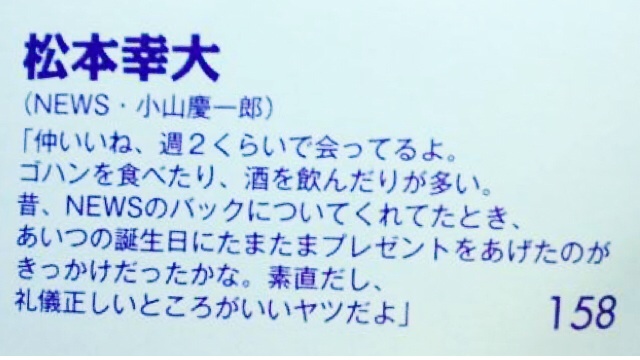 松本幸大
（NEWS・小山慶一郎）
「仲いいね、週2くらいで会ってるよ。
ゴハンを食べたり、酒を飲んだりが多い。
昔、NEWSのバックについてくれてたとき、
あいつの誕生日にたまたまプレゼントをあげたのが
きっかけだったかな。素直だし、
礼儀正しいところがいいヤツだよ」
158